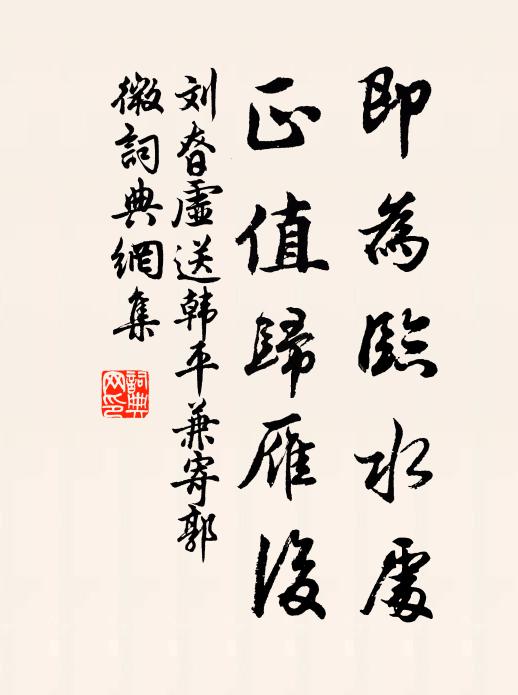 即為臨水處
正值歸雁後
刘眘虚送韩平兼寄郭
微詞典網集
詞典网印